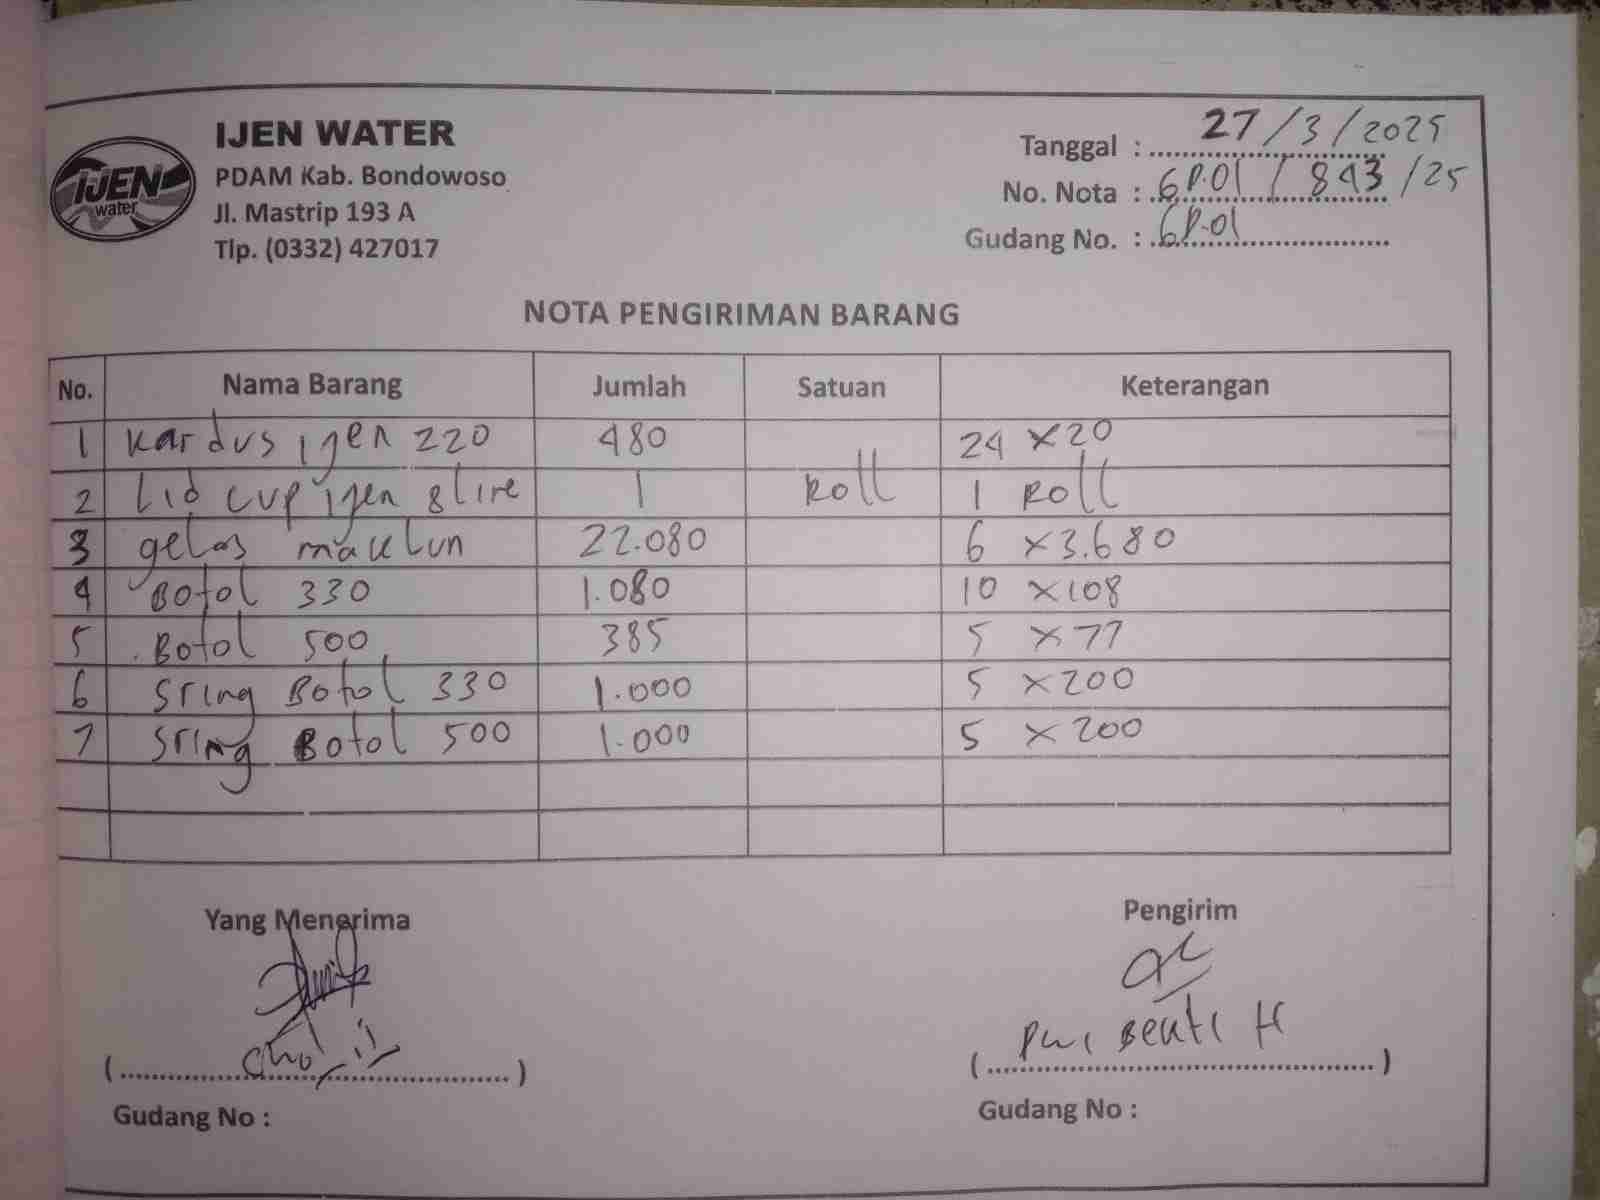 IJEN WATER
PDAM Kab. Bondowoso
Jl. Mastrip 193 A
Tlp. (0332) 427017
IJEN
water
Tanggal : 27/3/2025
No. Nota : GP.01 / 843 /25
Gudang No. : GP.01
NOTA PENGIRIMAN BARANG
No. Nama Barang Jumlah Satuan Keterangan
1 Kardus ijen 220 480 24 x 20
2 Lid cup ijen 8 line 1 Roll 1 Roll
3 gelas maklun 22.080 6 x 3.680
4 Botol 330 1.080 10 x 108
5 Botol 500 385 5 x 77
6 Sring Botol 330 1.000 5 x 200
7 Sring Botol 500 1.000 5 x 200
Yang Menerima Pengirim
( ) ( )
Gudang No : Gudang No :